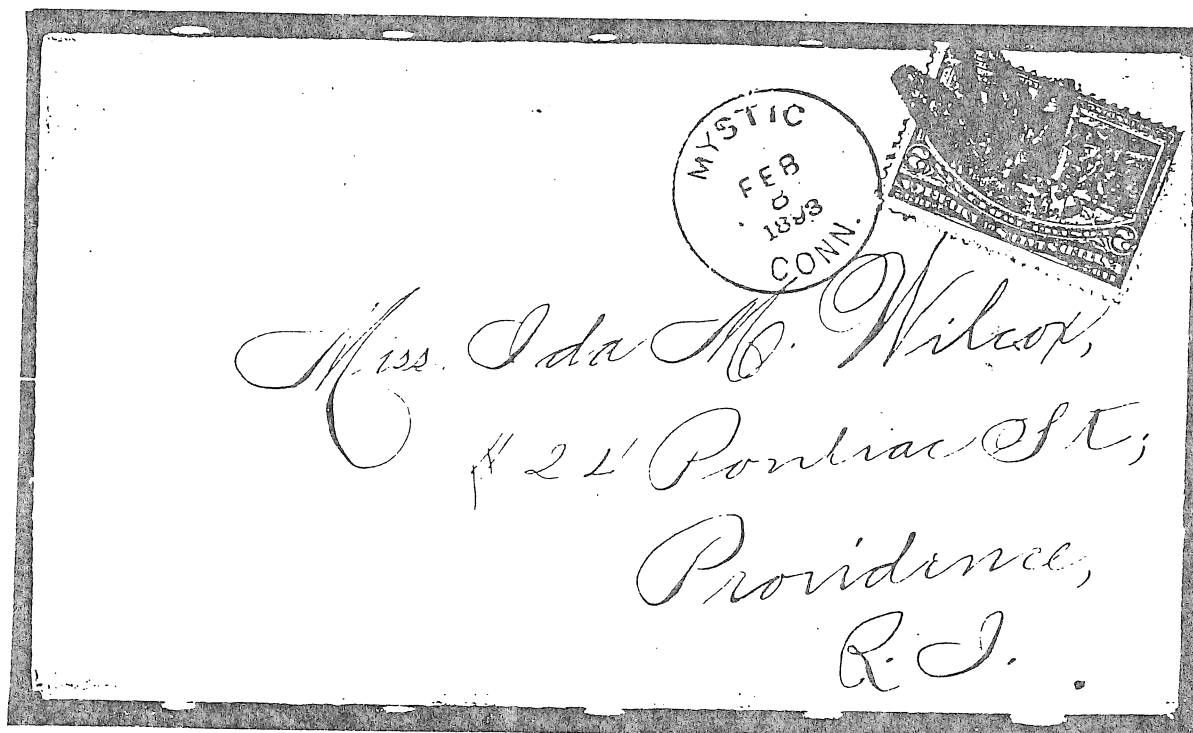 MYSTIC
FEB
8
1893
CONN.
Miss. Ida M. Wilcox,
# 24 Pontiac St,
Providence,
R. I.